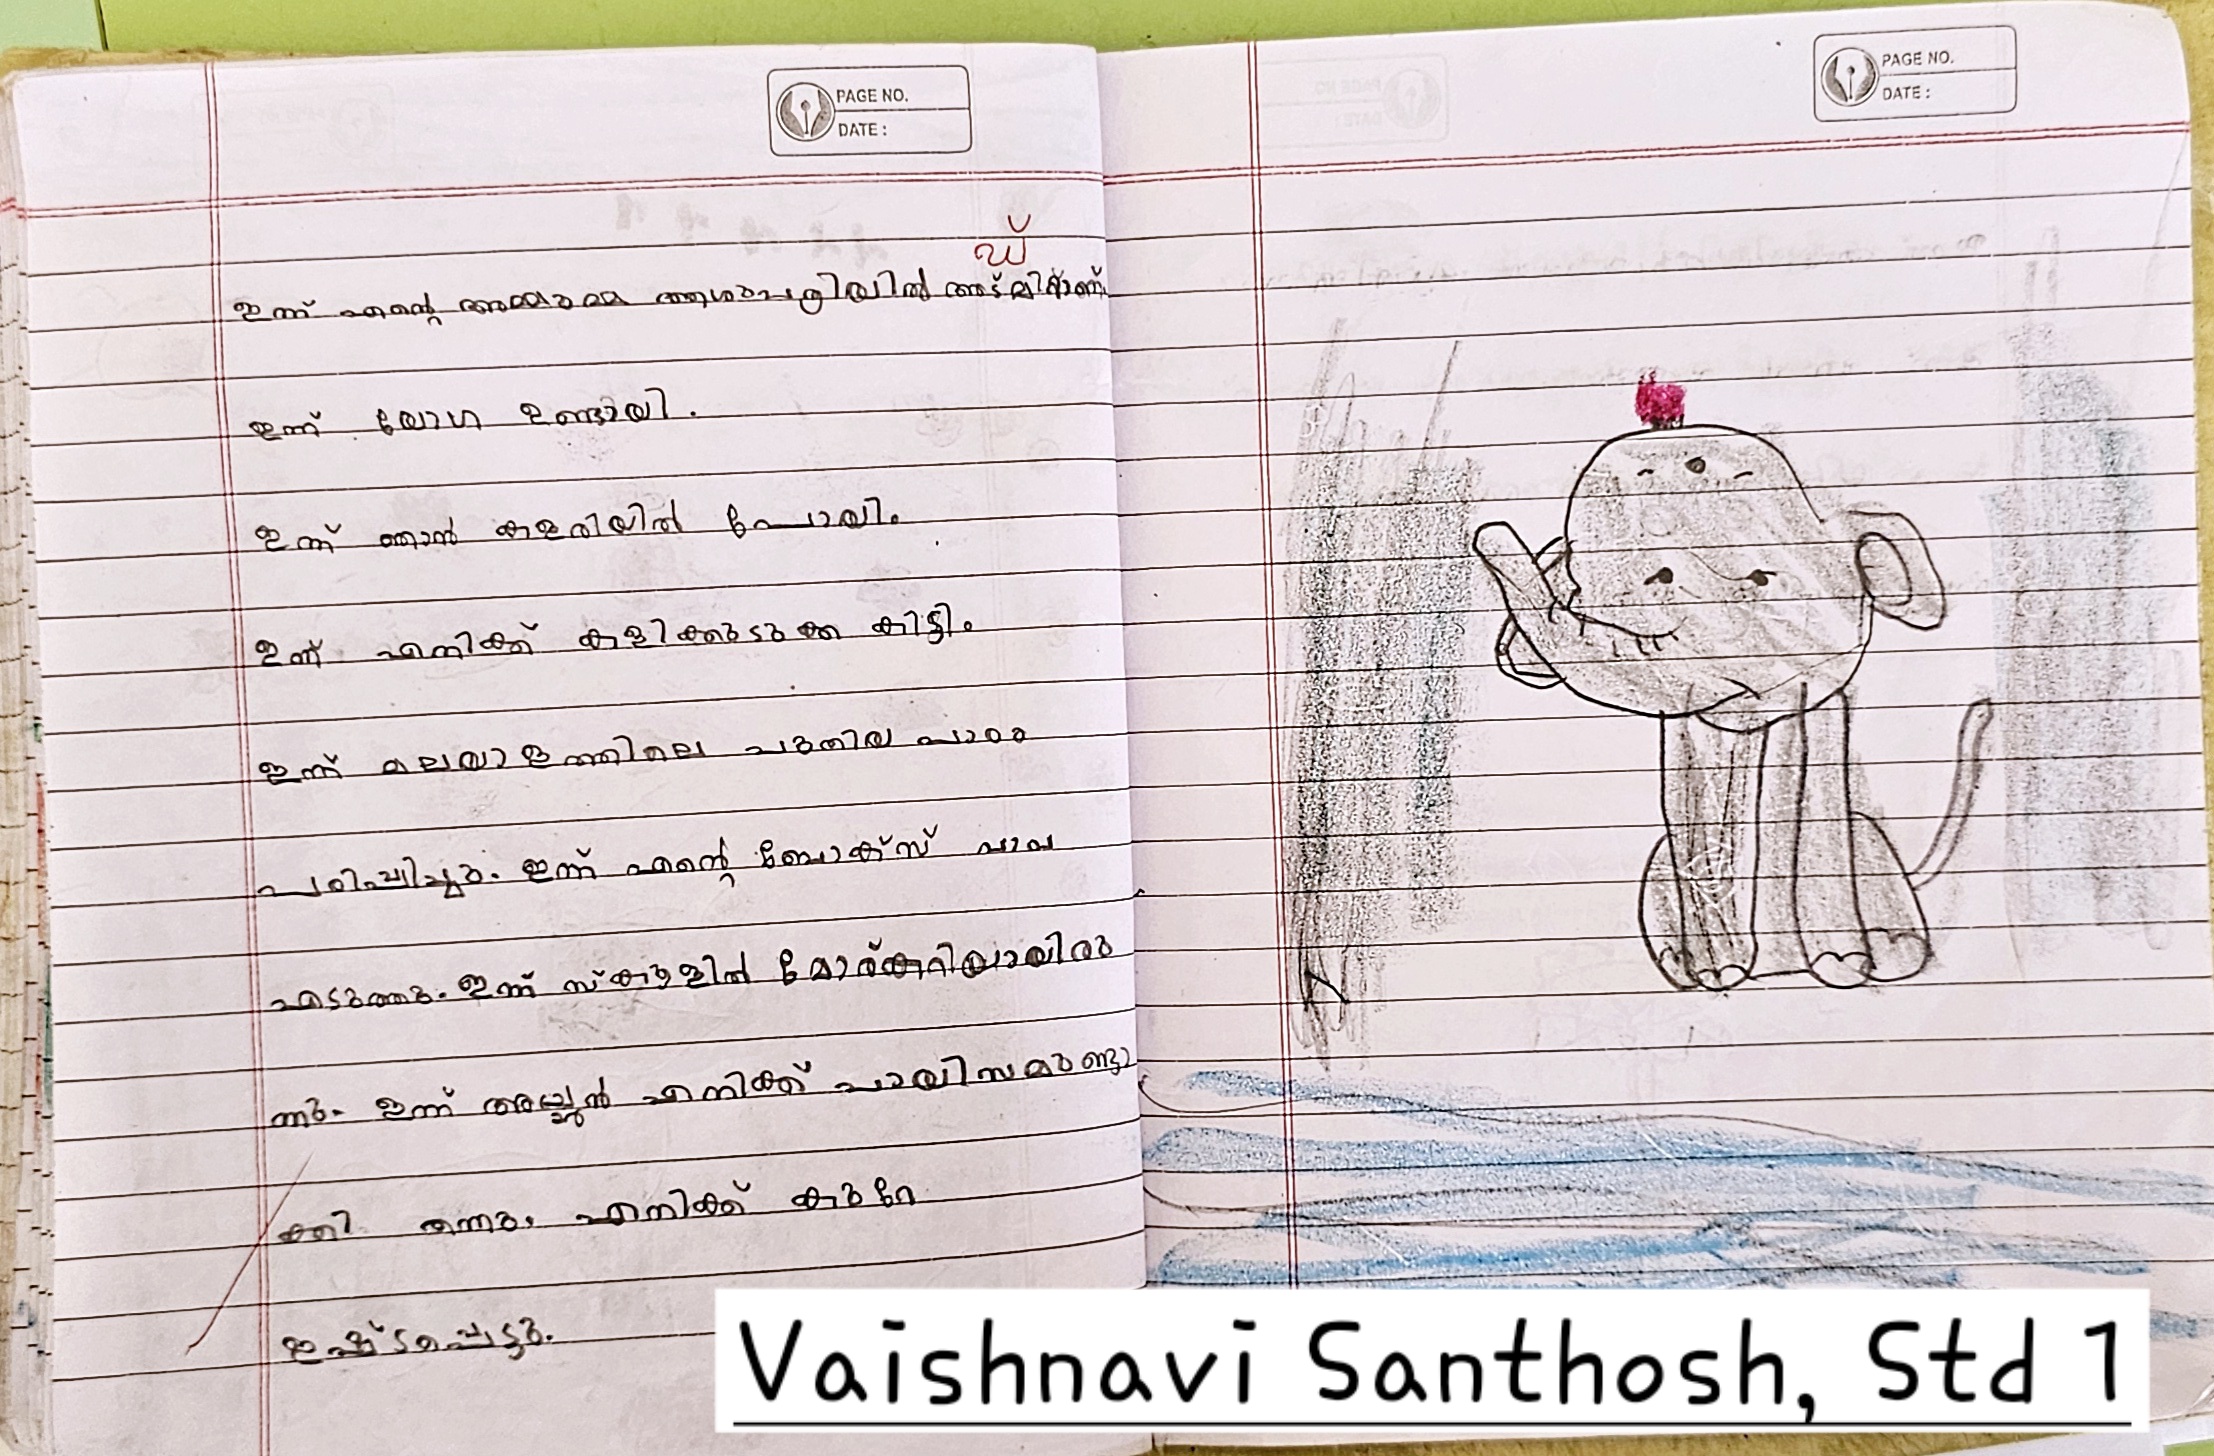 PAGE NO.
DATE :
ഡ്
ഇന്ന് എന്റെ അമ്മാമ്മ ആശുപത്രിയിൽ
ഇന്ന് യോഗ ഉണ്ടായി.
ഇന്ന് ഞാൻ കളരിയിൽ പോയി.
ഇന്ന് എനിക്ക് കളിക്കുടുക്ക കിട്ടി.
ഇന്ന് മലയാളത്തിലെ പുതിയ പാഠം
പഠിപ്പിച്ചു. ഇന്ന് എന്റെ ബോക്സ്
എടുത്തു. ഇന്ന് സ്കൂളിൽ
ന്നു. ഇന്ന് അച്ഛൻ എനിക്ക് പായിസമുണ്ടാ
ക്കി തന്നു. എനിക്ക് കുറേ
ഇഷ്ടപ്പെട്ടു.
PAGE NO.
DATE :
Vaishnavi Santhosh, Std 1